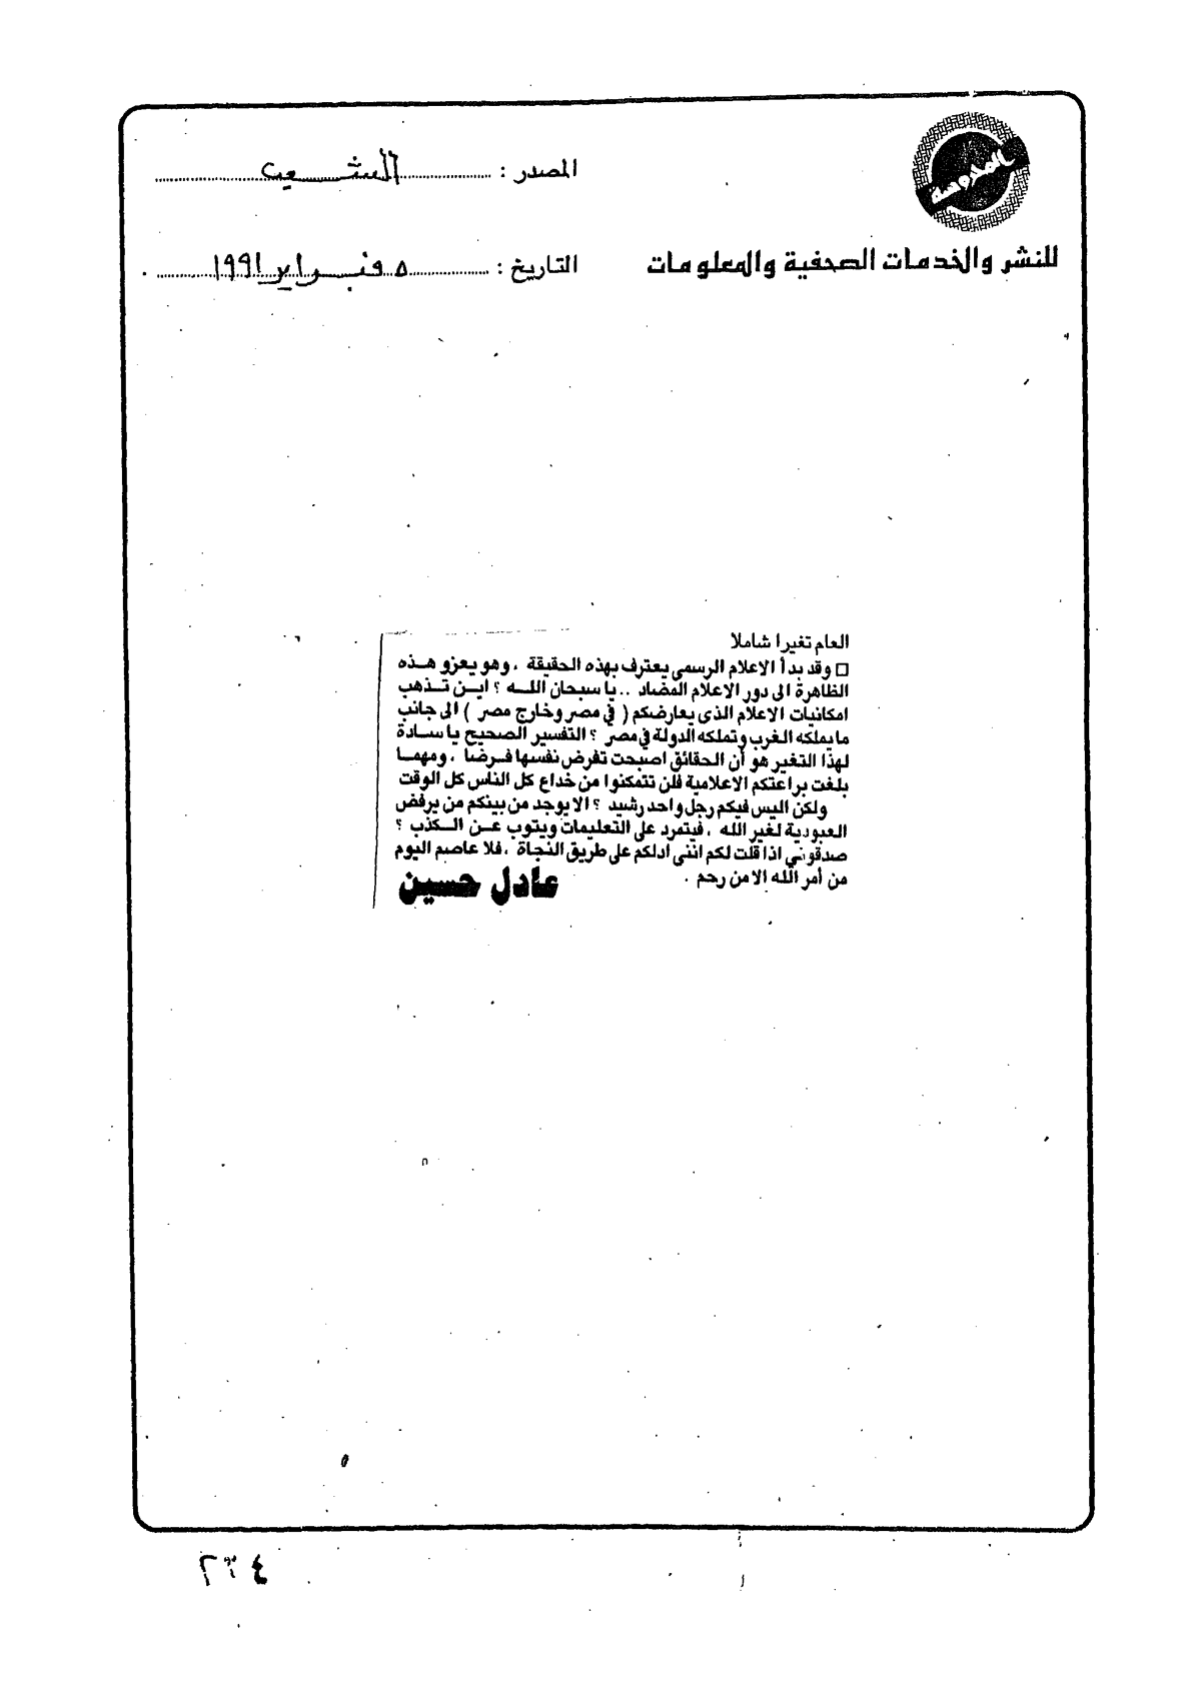 المحروسة
للنشر والخدمات الصحفية والمعلومات
المصدر : الشعب
التاريخ : ٥ فبراير ١٩٩١
العام تغيرا شاملا
□ وقد بدأ الاعلام الرسمى يعترف بهذه الحقيقة ، وهو يعزو هذه
الظاهرة الى دور الاعلام المضاد .. يا سبحان الله ؟ اين تذهب
امكانيات الاعلام الذى يعارضكم ( فى مصر وخارج مصر ) الى جانب
ما يملكه الغرب وتملكه الدولة فى مصر ؟ التفسير الصحيح يا سادة
لهذا التغير هو أن الحقائق اصبحت تفرض نفسها فرضا ، ومهما
بلغت براعتكم الاعلامية فلن تتمكنوا من خداع كل الناس كل الوقت
ولكن اليس فيكم رجل واحد رشيد ؟ الا يوجد من بينكم من يرفض
العبودية لغير الله ، فيتمرد على التعليمات ويتوب عن الكذب ؟
صدقونى اذا قلت لكم اننى ادلكم على طريق النجاة ، فلا عاصم اليوم
من أمر الله الا من رحم .
عادل حسين